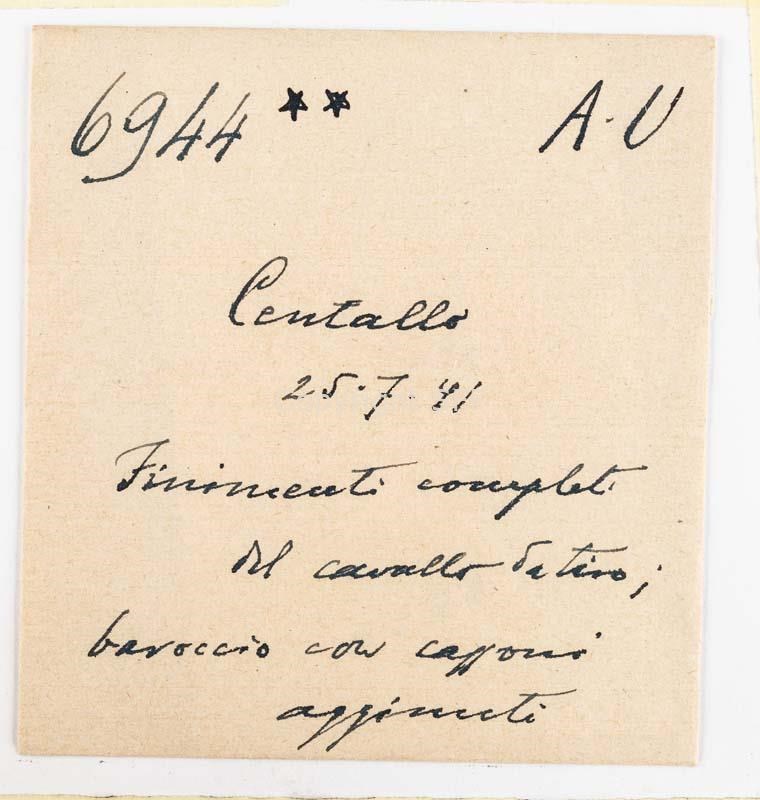 6944 ** A·U
Centallo
25·7·41
Finimenti completi
del cavallo da tiro;
baroccio con cassoni
aggiunti